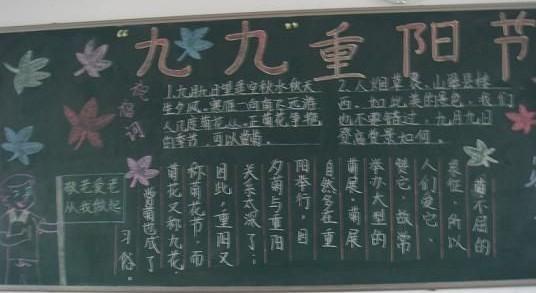 “九九重阳节
祝福词
1.九月九日望遥空,秋水秋天
生夕风。寒雁一向南飞远,游
人几度菊花丛。正菊花争艳
的季节,可以赏菊。
2.人烟
西。如此美的景色,我们
也不要错过,九月九日
登高赏景如何。
敬老爱老
从我做起
菊不屈的
象征,所以
人们爱它、
赞它,故常
举办大型的
菊展。菊展
自然多在重
阳举行,因
为菊与重阳
关系太深了;
因此,重阳又
称菊花节,而
菊花又称九花。
赏菊也成了
习俗。